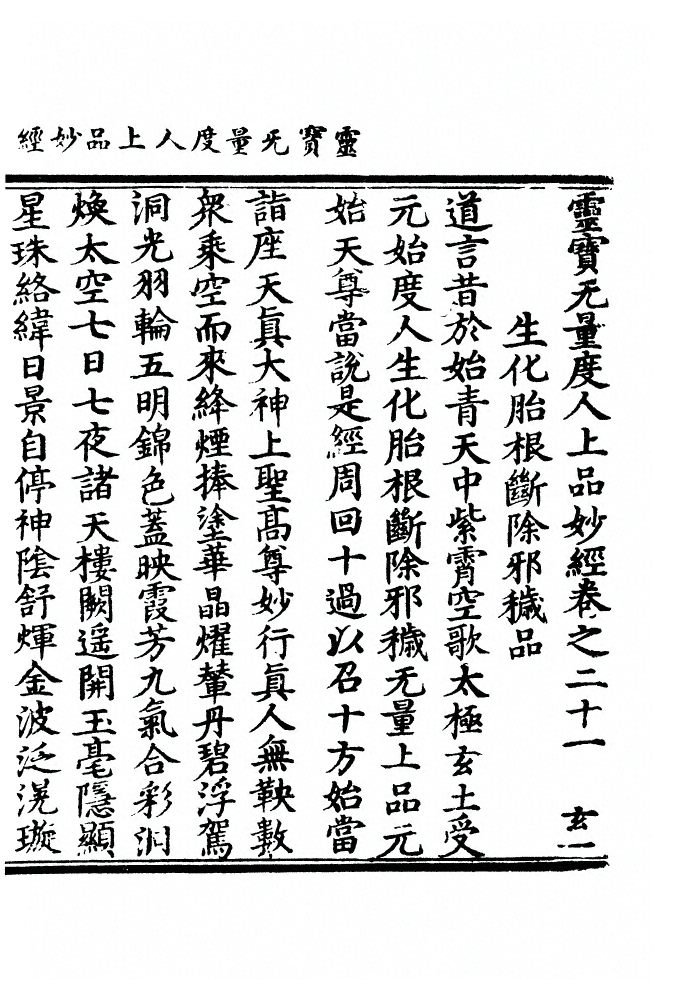 靈寶无量度人上品妙經
靈寶无量度人上品妙經卷之二十一 玄一
生化胎根斷除邪穢品
道言昔於始青天中紫霄空歌太極玄土受
元始度人生化胎根斷除邪穢无量上品元
始天尊當說是經周回十過以召十方始當
詣座天眞大神上聖高尊妙行眞人無鞅數
衆乘空而來絳煙捧塗華晶燿輦丹碧浮駕
洞光羽輪五明錦色蓋映霞芳九氣合彩洞
煥太空七日七夜諸天樓闕遥開玉毫隱顯
星珠絡緯日景自停神陰舒煇金波泛滉璇